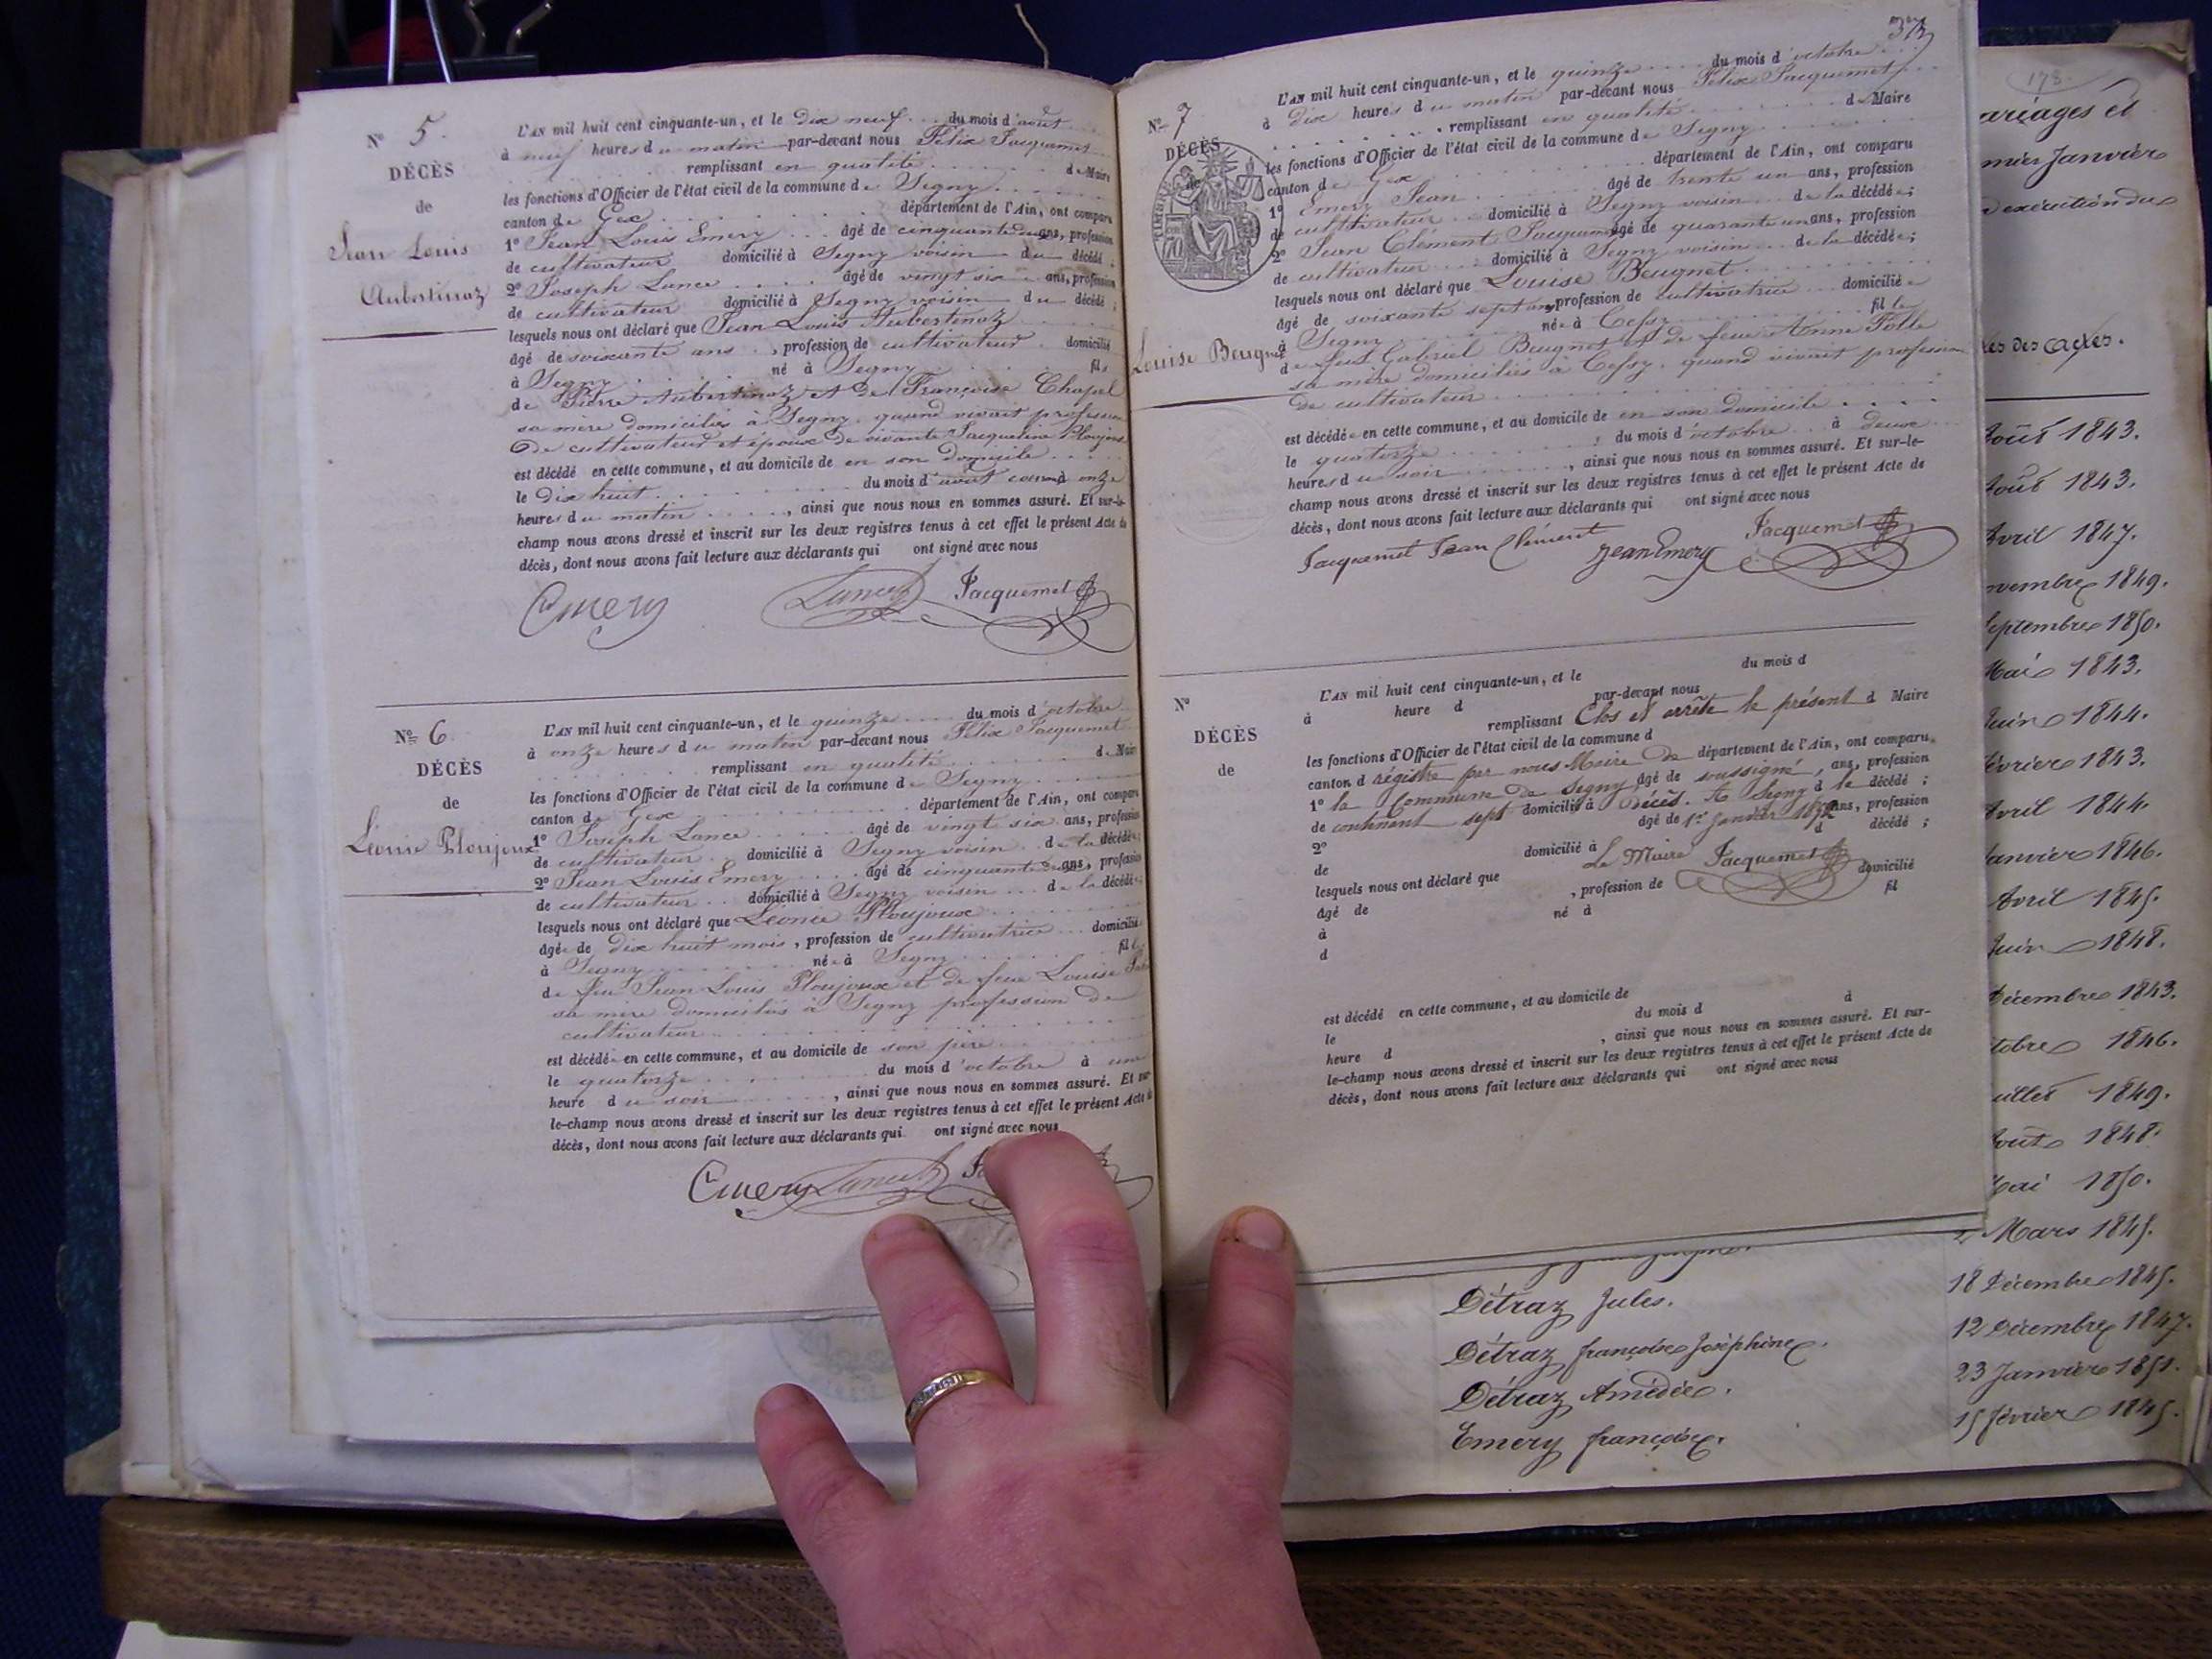 N° 5.
DÉCÈS
de
Jean Louis
Aubertinaz
L'AN mil huit cent cinquante-un, et le dix neuf du mois d'août
à neuf heures du matin par-devant nous Félix Jacquemet
remplissant en qualité de Maire
les fonctions d'Officier de l'état civil de la commune de Segny
canton de Gex département de l'Ain, ont comparu
1° Jean Louis Emery âgé de cinquante ans, profession
de cultivateur domicilié à Segny voisin du décédé ;
2° Joseph Lance âgé de vingt six ans, profession
de cultivateur domicilié à Segny voisin du décédé ;
lesquels nous ont déclaré que Jean Louis Aubertinaz
âgé de soixante ans, profession de cultivateur domicilié
à Segny né à Segny fils
de Pierre Aubertinaz et de Françoise Chapel
sa mère domiciliés à Segny quand vivait profession
de cultivateur et époux de vivante Jacqueline Ploujoux
est décédé en cette commune, et au domicile de en son domicile
le dix huit du mois d'août à onze
heures du matin, ainsi que nous nous en sommes assuré. Et sur-le-
champ nous avons dressé et inscrit sur les deux registres tenus à cet effet le présent Acte de
décès, dont nous avons fait lecture aux déclarants qui ont signé avec nous
Emery Lance Jacquemet
N° 6
DÉCÈS
de
Léonie Ploujoux
L'AN mil huit cent cinquante-un, et le quinze du mois d'octobre
à onze heures du matin par-devant nous Félix Jacquemet
remplissant en qualité de Maire
les fonctions d'Officier de l'état civil de la commune de Segny
canton de Gex département de l'Ain, ont comparu
1° Joseph Lance âgé de vingt six ans, profession
de cultivateur domicilié à Segny voisin de la décédée ;
2° Jean Louis Emery âgé de cinquante ans, profession
de cultivateur domicilié à Segny voisin de la décédée
lesquels nous ont déclaré que Léonie Ploujoux
âgée de dix huit mois, profession de cultivatrice domicilié
à Segny née à Segny fille
de feu Jean Louis Ploujoux et de feue Louise
sa mère domiciliés à Segny profession de
cultivateur
est décédée en cette commune, et au domicile de son père
le quatorze du mois d'octobre à une
heure du soir, ainsi que nous nous en sommes assuré. Et sur-
le-champ nous avons dressé et inscrit sur les deux registres tenus à cet effet le présent Acte de
décès, dont nous avons fait lecture aux déclarants qui ont signé avec nous
Emery Lance
N° 7
DÉCÈS
de
Louise Beugnet
L'AN mil huit cent cinquante-un, et le quinze du mois d'octobre
à dix heures du matin par-devant nous Félix Jacquemet
remplissant en qualité de Maire
les fonctions d'Officier de l'état civil de la commune de Segny
canton de Gex département de l'Ain, ont comparu
1° Emery Jean âgé de trente un ans, profession
de cultivateur domicilié à Segny voisin de la décédée ;
2° Jean Clément Jacquemet âgé de quarante un ans, profession
de cultivateur domicilié à Segny voisin de la décédée ;
lesquels nous ont déclaré que Louise Beugnet
âgé de soixante sept ans, profession de cultivatrice domiciliée
à Segny née à Cessy fille
de feu Gabriel Beugnet et de feue Anne Folle
sa mère domiciliés à Cessy quand vivait profession
de cultivateur
est décédée en cette commune, et au domicile de en son domicile
le quatorze du mois d'octobre à deux
heures du soir, ainsi que nous nous en sommes assuré. Et sur-le-
champ nous avons dressé et inscrit sur les deux registres tenus à cet effet le présent Acte de
décès, dont nous avons fait lecture aux déclarants qui ont signé avec nous
Jacquemet Jean Clément Jean Emery Jacquemet
N°
DÉCÈS
de
L'AN mil huit cent cinquante-un, et le du mois d
à heure d par-devant nous
remplissant Clos et arrêté le présent d Maire
les fonctions d'Officier de l'état civil de la commune d
canton d régistre par nous Maire de département de l'Ain, ont comparu
1° la Commune de Segny, âgé de soussigné, ans, profession
de contenant sept domicilié à décès. A Segny d le décédé ;
2° âgé de 1er Janvier 1852 ans, profession
de domicilié à d décédé ;
lesquels nous ont déclaré que Le Maire Jacquemet
âgé de , profession de domicilié
à né à fil
d
est décédé en cette commune, et au domicile de
le du mois d à
heure d , ainsi que nous nous en sommes assuré. Et sur-
le-champ nous avons dressé et inscrit sur les deux registres tenus à cet effet le présent Acte de
décès, dont nous avons fait lecture aux déclarants qui ont signé avec nous
178
ariages et
mier Janvier
exécution du
des actes.
Août 1843.
Août 1843.
Avril 1847.
novembre 1849.
Septembre 1850.
Mai 1843.
Juin 1844.
février 1843.
Avril 1844.
Janvier 1846.
Avril 1845.
Juin 1848.
Décembre 1843.
tobre 1846.
uillet 1849.
Août 1848.
Mai 1850.
Mars 1845.
Détraz Jules. 18 Décembre 1845.
Détraz françoise Joséphine. 12 Décembre 1847.
Détraz Amédée. 23 Janvier 1851.
Emery françoise. 15 février 1845.